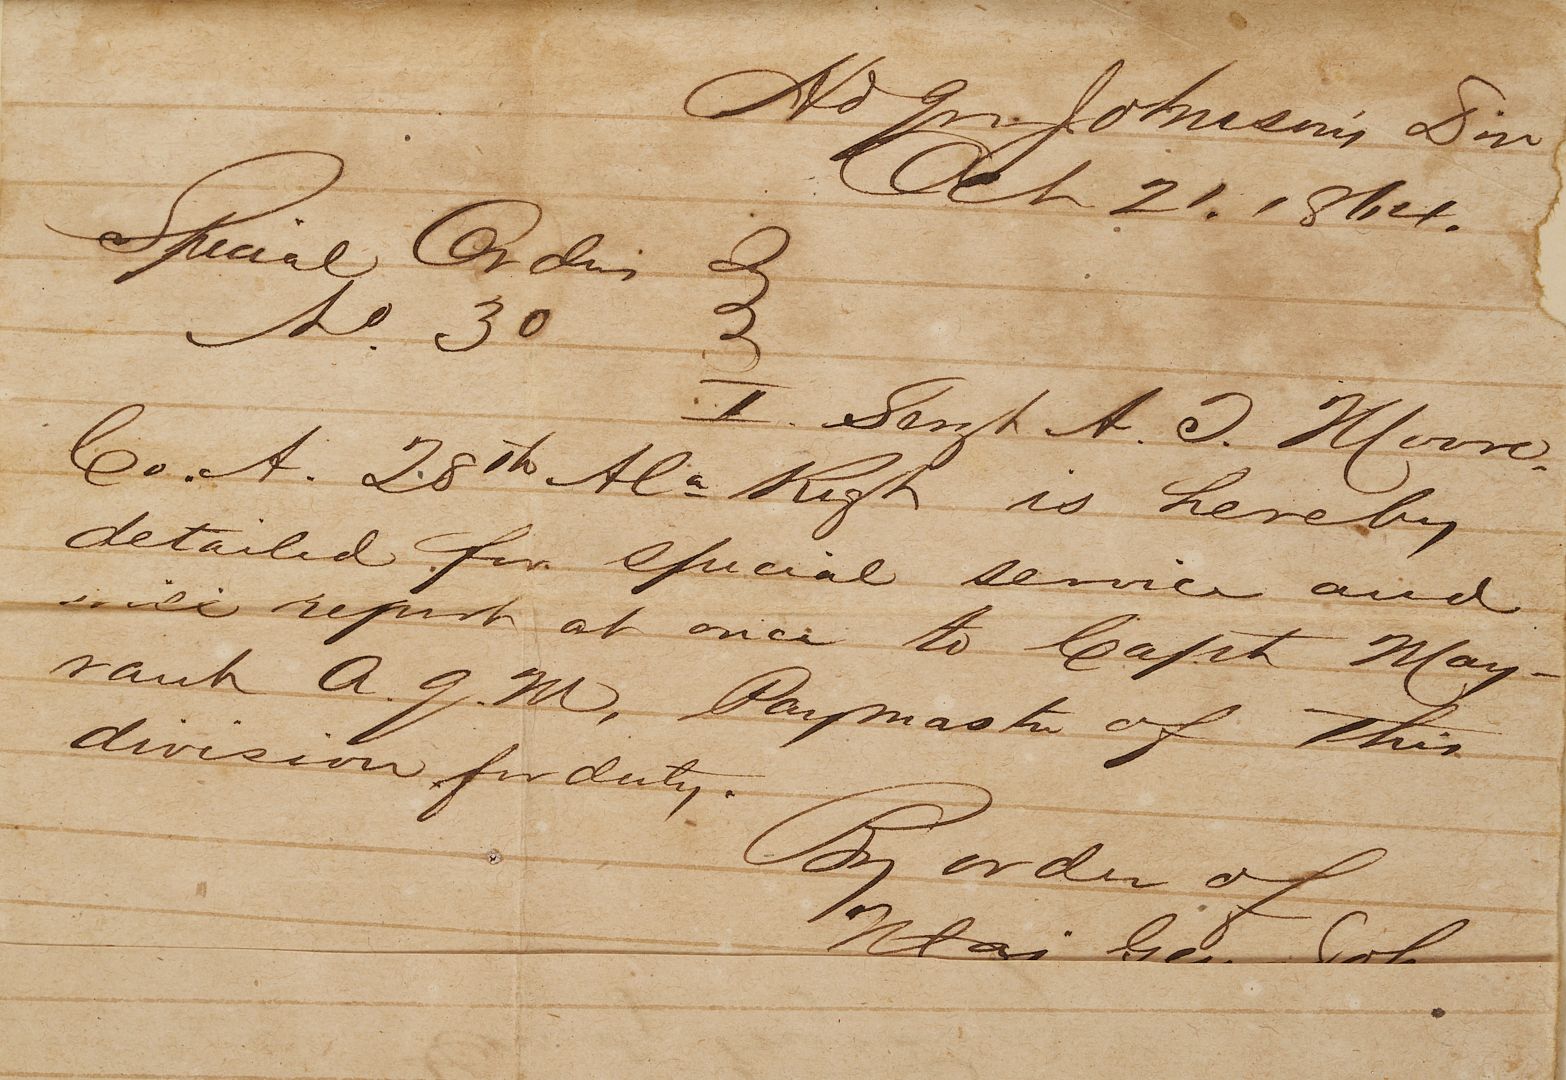 Hd Qrs Johnson's Div
Oct 21. 1864.
Special Orders }
No. 30 }
I. Sergt A. J. Moore.
Co. A. 28th Ala Regt is hereby
detailed for special service and
will report at once to Capt May-
rant A. Q. M, Paymaster of this
division for duty.
By order of
Maj Gen Joh